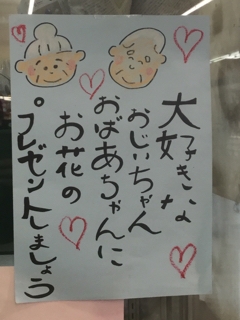 大好きな
おじいちゃん
おばあちゃんに
お花の
プレゼントしましょう